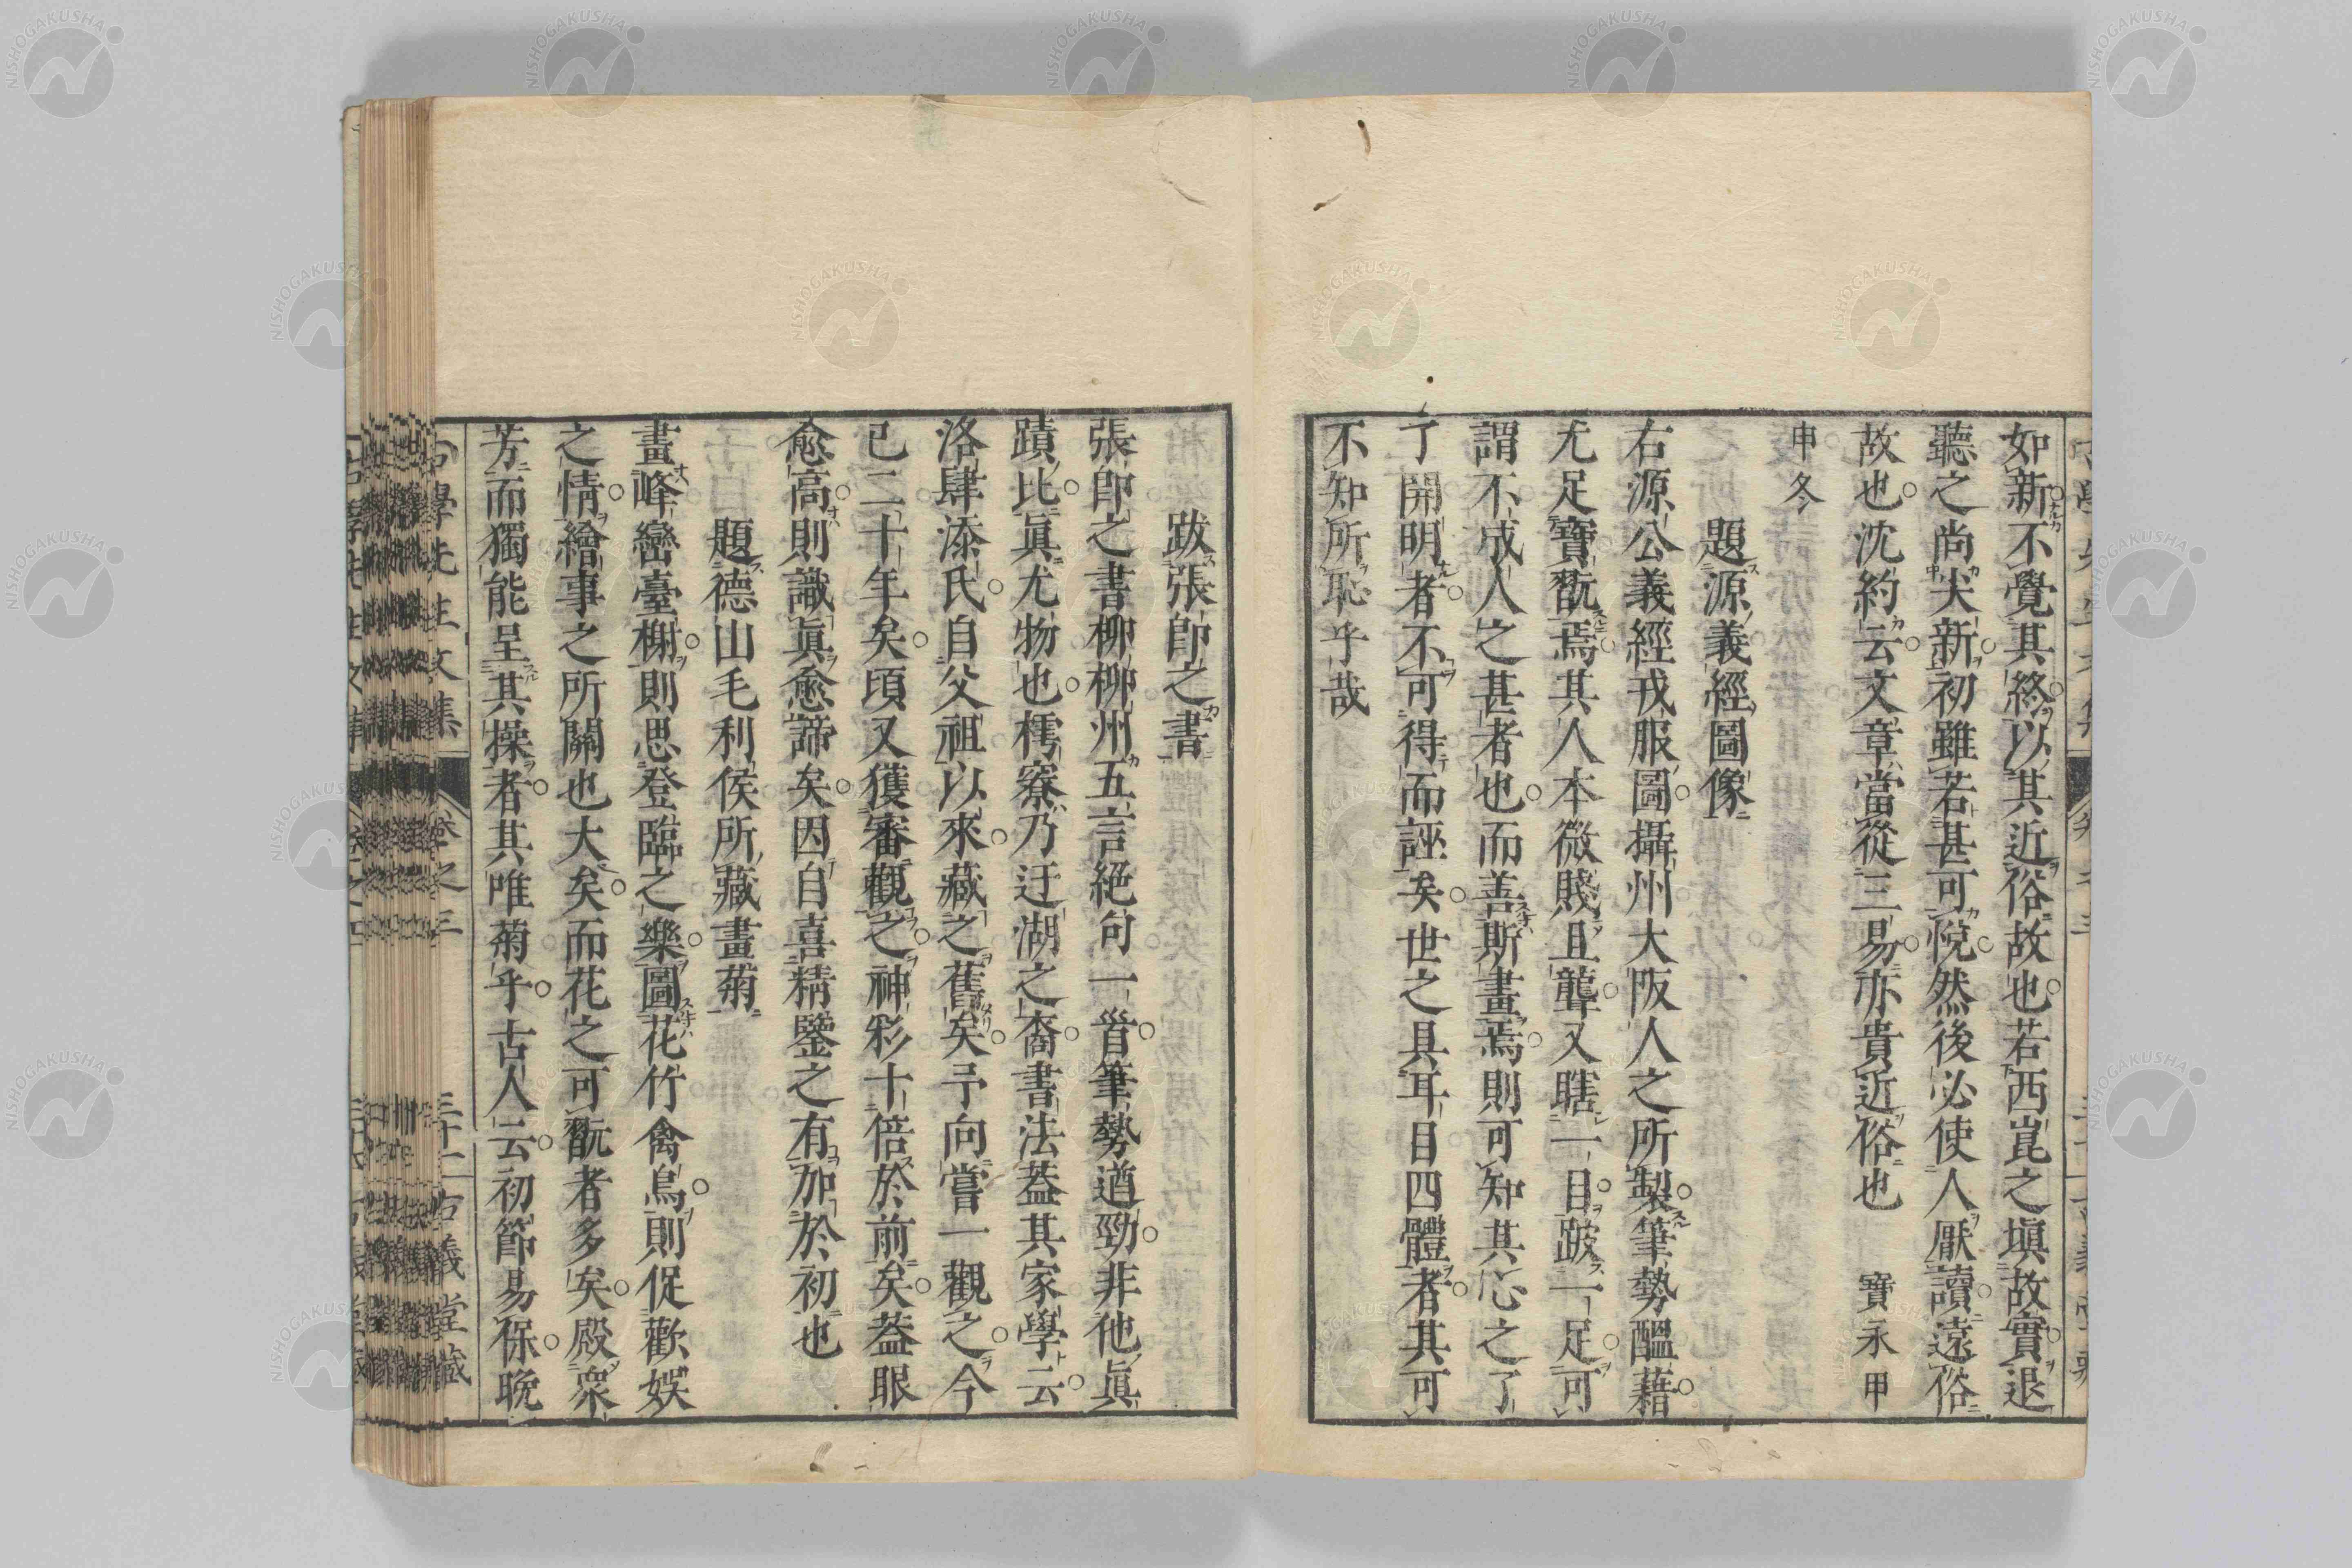 如新不覺其終以其近俗故也若西崑之塡故實退
聽之尚尖新初雖若甚可悅然後必使人厭讀遠俗
故也沈約云文章當從三易亦貴近俗也 寶永甲
申冬
題源義經圖像
右源公義經戎服圖攝州大阪人之所製筆勢醞藉
尤足寶翫焉其人本微賤且聾又瞎一目跛一足可
謂不成人之甚者也而善斯畫焉則可知其心之了
了開明者不可得而誣矣世之具耳目四體者其可
不知所恥乎哉
跋張卽之書
張卽之書柳柳州五言絕句一首筆勢遒勁非他眞
蹟比眞尤物也樗寮乃迂湖之裔書法蓋其家學云
洛肆添氏自父祖以來藏之舊矣予向嘗一觀之今
已二十年矣頃又獲審觀之神彩十倍於前矣蓋眼
愈高則識眞愈諦矣因自喜精鑒之有加於初也
題德山毛利侯所藏畫菊
畫峰巒臺榭則思登臨之樂圖花竹禽鳥則促歡娛
之情繪事之所關也大矣而花之可翫者多矣殿衆
芳而獨能呈其操者其唯菊乎古人云初節易保晚
古學先生文集 卷之三 三十二 古義堂藏
NISHOGAKUSHA